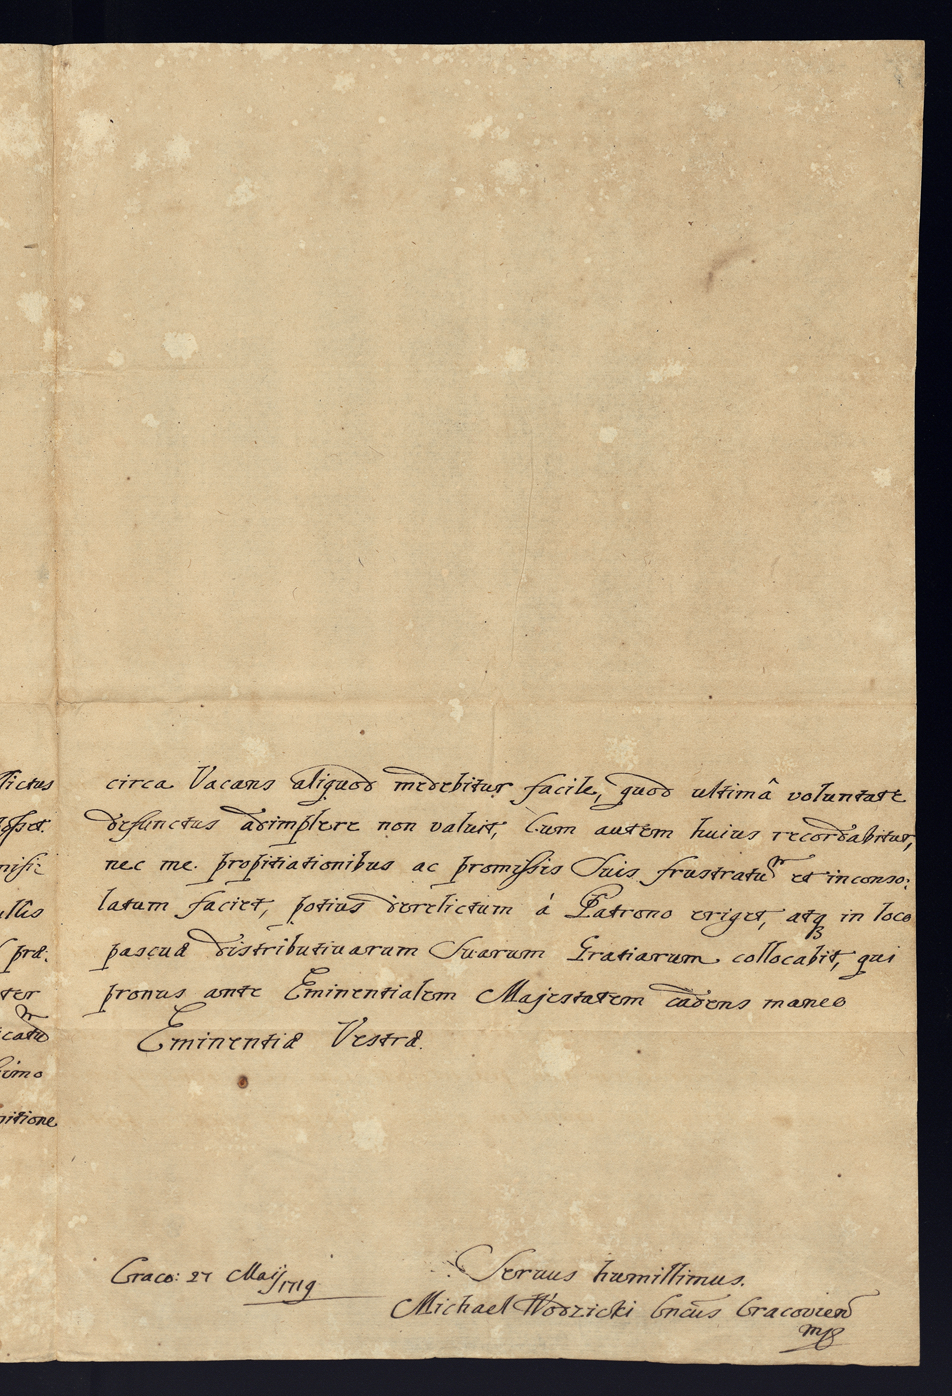 circa Vacans aliquod medebitur facile, quod ultimâ voluntate
defunctus adimplere non valuit, Cum autem huius recordabitur,
nec me propitiationibus ac promissis Suis frustratum et inconso:
latum faciet, potius derelictum á Patrono eriget, atq3 in loco
pascuæ distributiuarum Suarum Gratiarum collocabit, qui
pronus ante Eminentialem Majestatem cadens maneo
Eminentiæ Vestræ.
Craco: 27 Maij 1719
Seruus humillimus.
Michael Wodzicki Cncus Cracovien
mp
ictus
ter
simo
itione